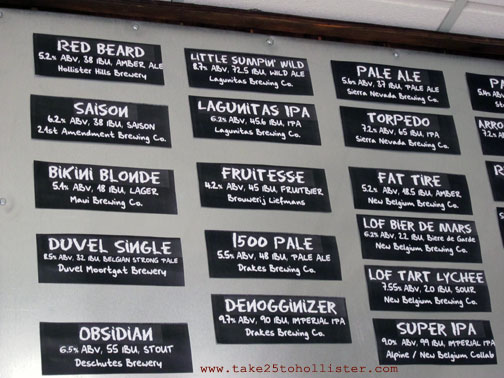 RED BEARD
5.2% ABV, 38 IBU, AMBER ALE
Hollister Hills Brewery
SAISON
6.2% ABV, 38 IBU, SAISON
21st Amendment Brewing Co.
BIKINI BLONDE
5.1% ABV, 18 IBU, LAGER
Maui Brewing Co.
DUVEL SINGLE
8.5% ABV, 32 IBU, BELGIAN STRONG PALE
Duvel Moortgat Brewery
OBSIDIAN
6.5% ABV, 55 IBU, STOUT
Deschutes Brewery
LITTLE SUMPIN' WILD
8.7% ABV, 72.5 IBU, WILD ALE
Lagunitas Brewing Co.
LAGUNITAS IPA
6.2% ABV, 45.6 IBU, IPA
Lagunitas Brewing Co.
FRUITESSE
4.2% ABV, 45 IBU, FRUITBIER
Brouwerij Liefmans
1500 PALE
5.5% ABV, 48 IBU, PALE ALE
Drakes Brewing Co.
DENOGGINIZER
9.7% ABV, 90 IBU, IMPERIAL IPA
Drakes Brewing Co.
PALE ALE
5.6% ABV, 37 IBU, PALE ALE
Sierra Nevada Brewing Co.
TORPEDO
7.2% ABV, 65 IBU, IPA
Sierra Nevada Brewing Co.
FAT TIRE
5.2% ABV, 18.5 IBU, AMBER
New Belgium Brewing Co.
LOF BIER DE MARS
6.2% ABV, 22 IBU, Biere de Garde
New Belgium Brewing Co.
LOF TART LYCHEE
7.55% ABV, 20 IBU, SOUR
New Belgium Brewing Co.
SUPER IPA
9.0% ABV, 99 IBU, IMPERIAL IPA
Alpine / New Belgium Collab
www.take25tohollister.com